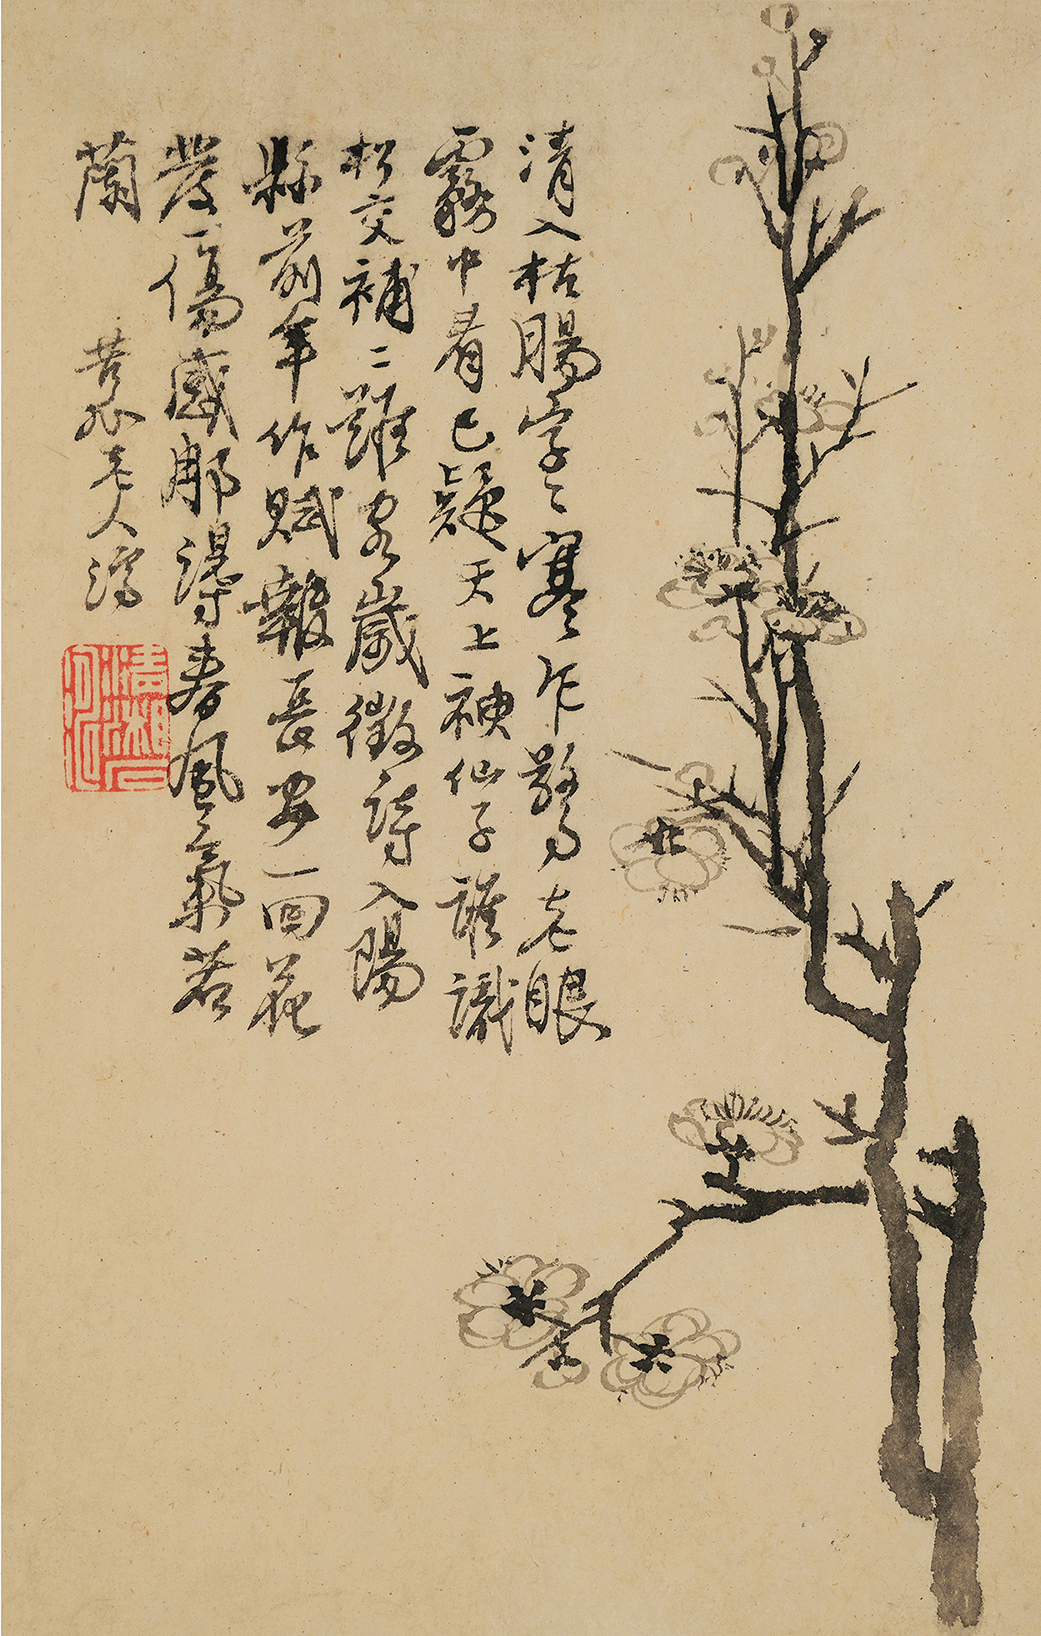 清入枯腸字々寒乍驚老眼
霧中看已疑天上神仙子誰識
松交補二難客歲徵詩入陽
縣前年作賦報長安一回花
發一傷感那得春風氣若
蘭
苦瓜老人濟